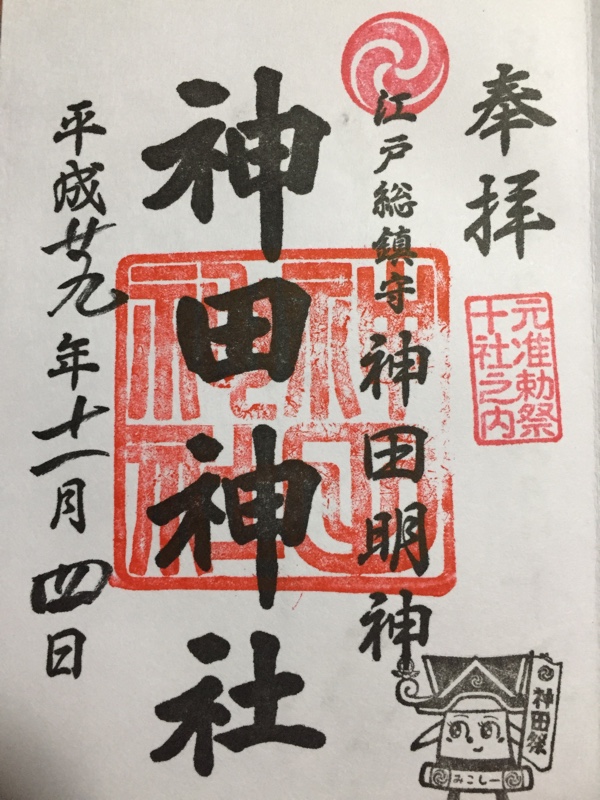 奉拝
元准勅祭
十社之内
江戸総鎮守 神田明神
神田神社
平成廿九年十一月四日
神田祭
みこしー